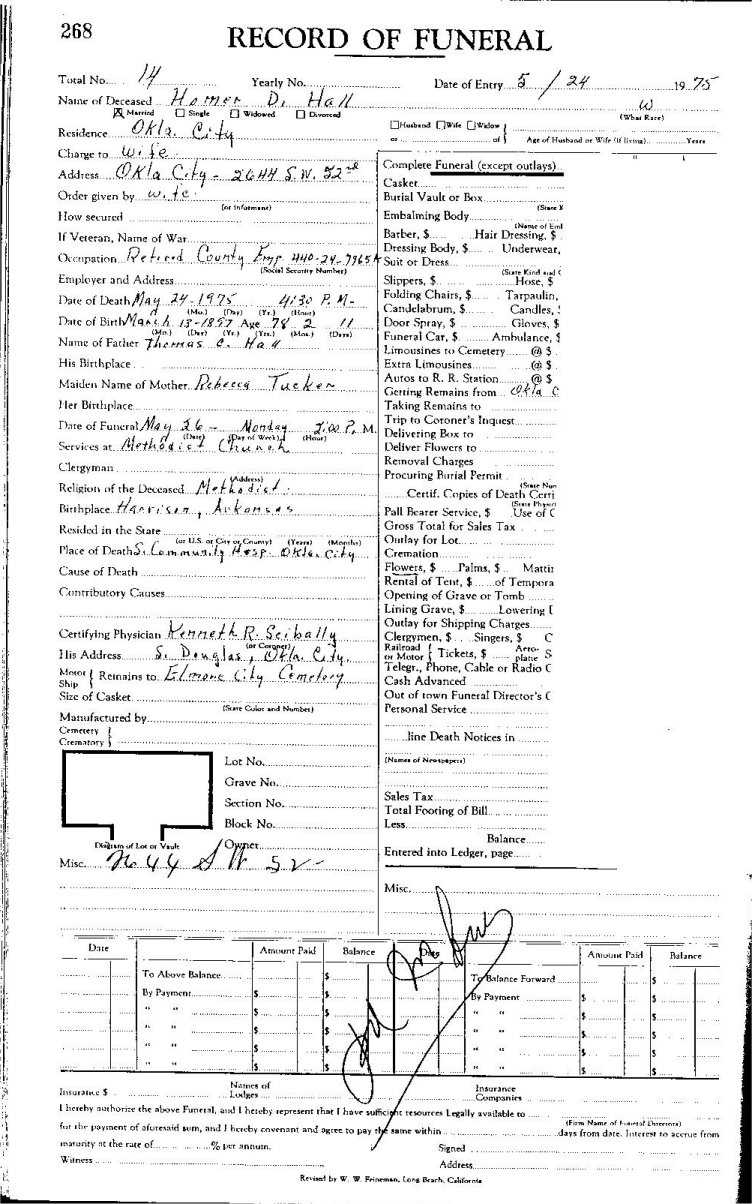 268
RECORD OF FUNERAL
Total No. 14 Yearly No. Date of Entry 5 / 24 1975
Name of Deceased Homer D. Hall W
Married Single Widowed Divorced (What Race)
Residence Okla. City Husband Wife Widow
or of Age of Husband or Wife (if living) Years
Charge to Wife
Address Okla City - 2644 S.W. 52nd
Order given by wife
(or informant)
How secured
If Veteran, Name of War
Occupation Retired County Emp. 440-24-7965A
(Social Security Number)
Employer and Address
Date of Death May 24-1975 4:30 P.M-
(Mo.) (Day) (Yr.) (Hour)
Date of Birth March 13-1897 Age 78 2 11
(Mo.) (Day) (Yr.) (Yrs.) (Mos.) (Days)
Name of Father Thomas C. Hall
His Birthplace
Maiden Name of Mother Rebecca Tucker
Her Birthplace
Date of Funeral May 26 - Monday 2:00 P. M.
(Date) (Day of Week) (Hour)
Services at Methodist Church
Clergyman
(Address)
Religion of the Deceased Methodist
Birthplace Harrison, Arkansas
Resided in the State
(or U.S. or City or County) (Years) (Months)
Place of Death S. Community Hosp. Okla. City
Cause of Death
Contributory Causes
Certifying Physician Kenneth R.
(or Coroner)
His Address S. Douglas, Okla. City.
Motor Ship Remains to Elmore City Cemetery
Size of Casket
(State Color and Number)
Manufactured by
Cemetery
Crematory
Lot No.
Grave No.
Section No.
Block No.
Diagram of Lot or Vault Owner
Misc. 2644 S W 52-
Complete Funeral (except outlays)
Casket
Burial Vault or Box
(State K
Embalming Body
(Name of Emb
Barber, $ Hair Dressing, $
Dressing Body, $ Underwear,
Suit or Dress
(State Kind and C
Slippers, $ Hose, $
Folding Chairs, $ Tarpaulin,
Candelabrum, $ Candles, $
Door Spray, $ Gloves, $
Funeral Car, $ Ambulance, $
Limousines to Cemetery @ $
Extra Limousines @ $
Autos to R. R. Station @ $
Getting Remains from Okla C
Taking Remains to
Trip to Coroner's Inquest
Delivering Box to
Deliver Flowers to
Removal Charges
Procuring Burial Permit
(State Num
Certif. Copies of Death Certi
(State Physici
Pall Bearer Service, $ Use of C
Gross Total for Sales Tax
Outlay for Lot
Cremation
Flowers, $ Palms, $ Mattin
Rental of Tent, $ of Tempora
Opening of Grave or Tomb
Lining Grave, $ Lowering D
Outlay for Shipping Charges
Clergymen, $ Singers, $ C
Railroad or Motor Tickets, $ Aero-plane S
Telegr., Phone, Cable or Radio C
Cash Advanced
Out of town Funeral Director's C
Personal Service
line Death Notices in
(Names of Newspapers)
Sales Tax
Total Footing of Bill
Less
Balance
Entered into Ledger, page
Misc.
Date Amount Paid Balance Date Amount Paid Balance
To Above Balance $ To Balance Forward $
By Payment $ $ By Payment $ $
" " $ $ " " $ $
" " $ $ " " $ $
" " $ $ " " $ $
" " $ $ " " $ $
Insurance $ Names of Lodges Insurance Companies
I hereby authorize the above Funeral, and I hereby represent that I have sufficient resources Legally available to
(Firm Name of Funeral Directors)
for the payment of aforesaid sum, and I hereby covenant and agree to pay the same within days from date. Interest to accrue from
maturity at the rate of % per annum. Signed
Witness Address
Revised by W. W. Feineman, Long Beach, California